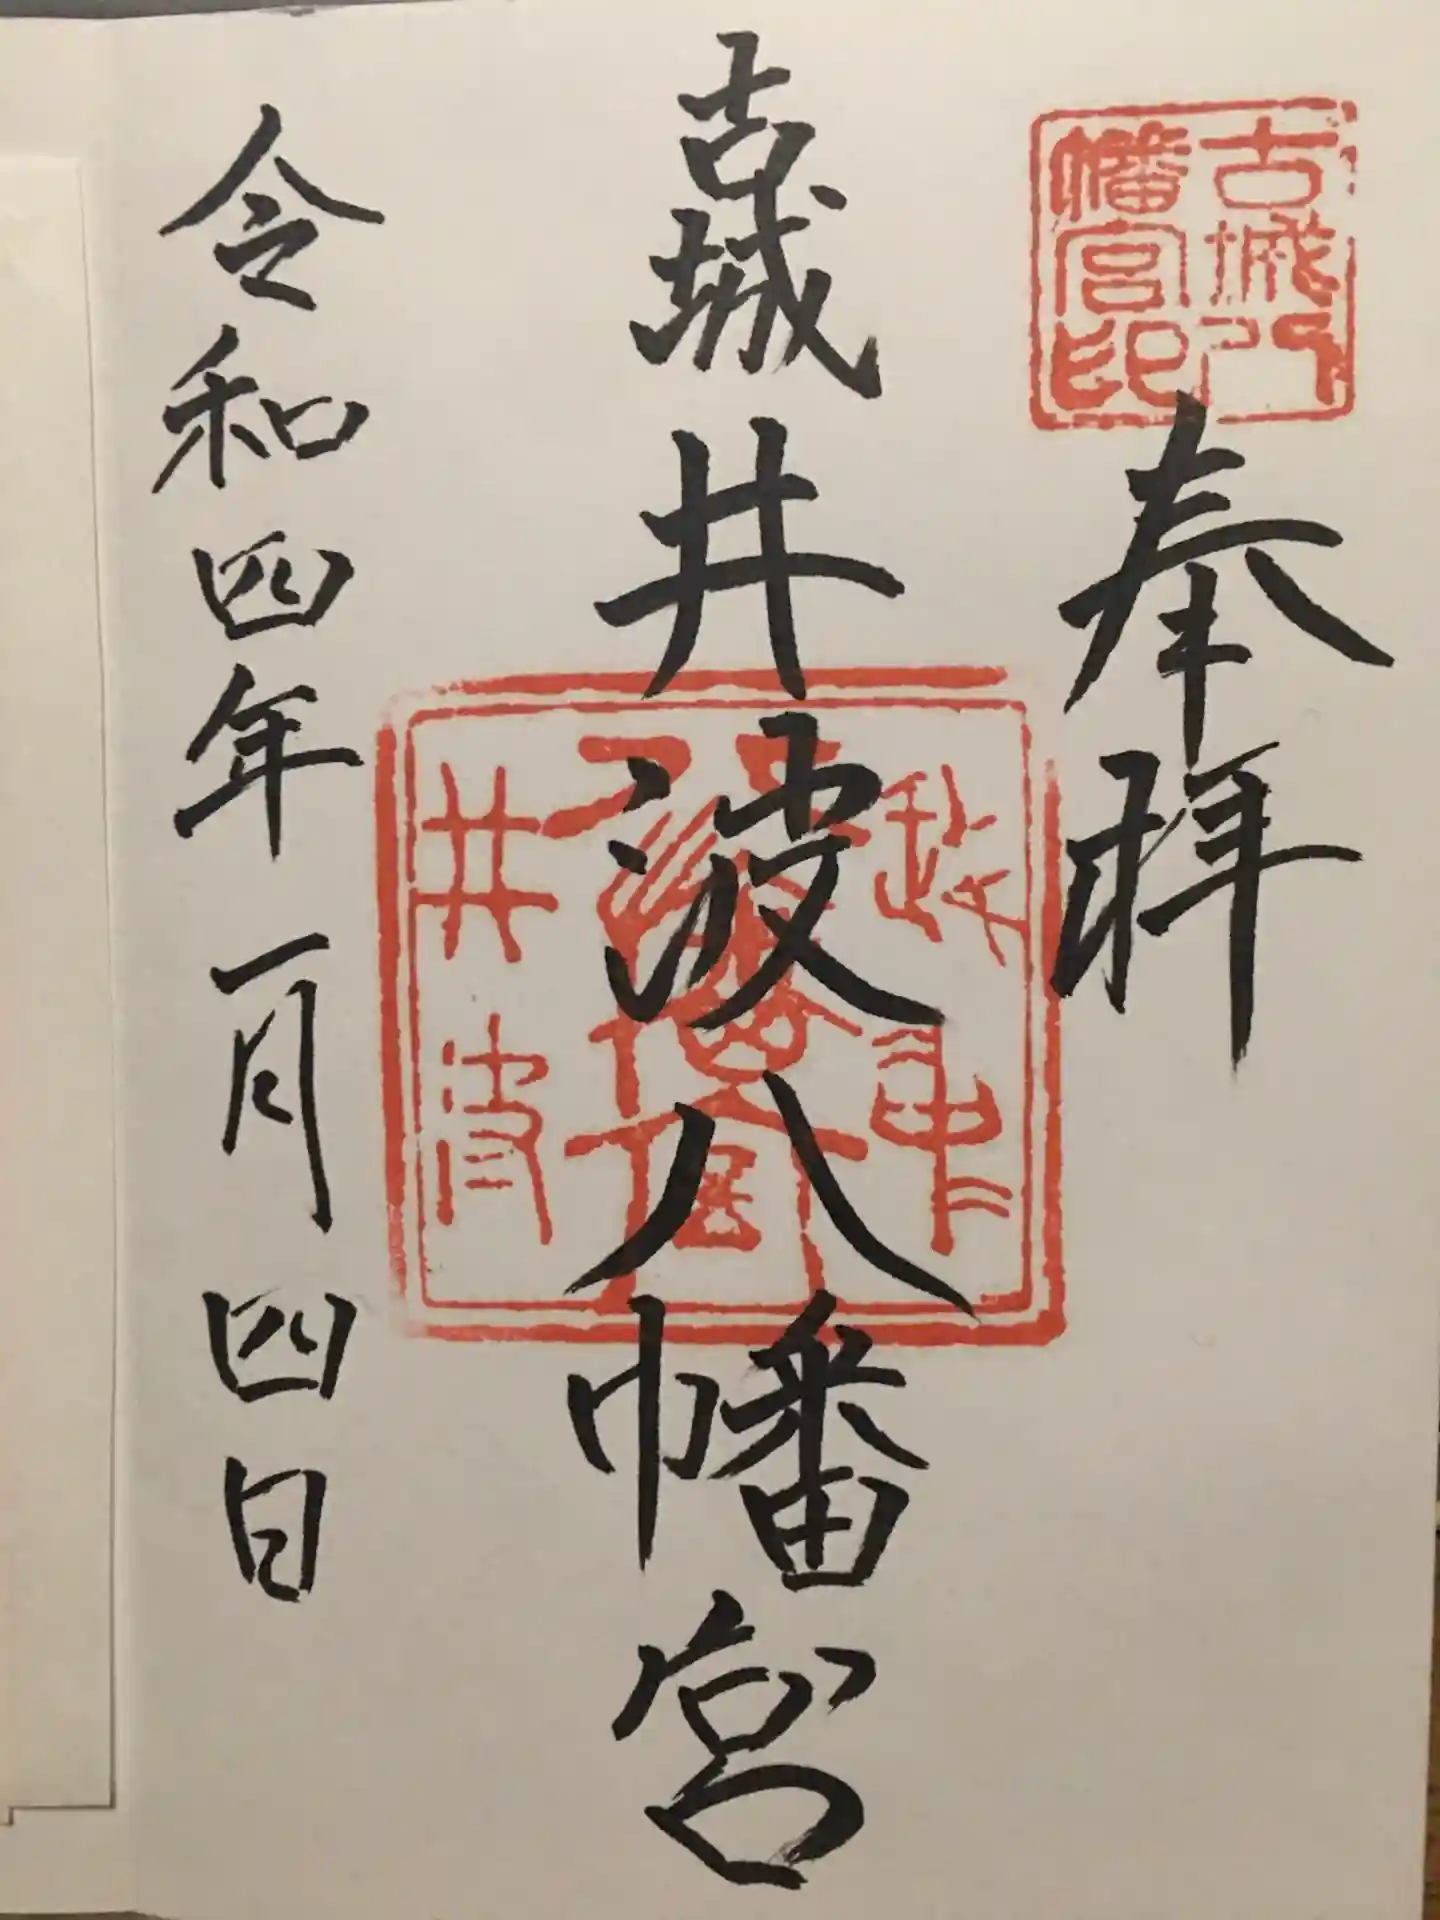 古城八
幡宮印
奉拜
古城井波八幡宮
越中
八幡宮
井波
令和四年一月四日